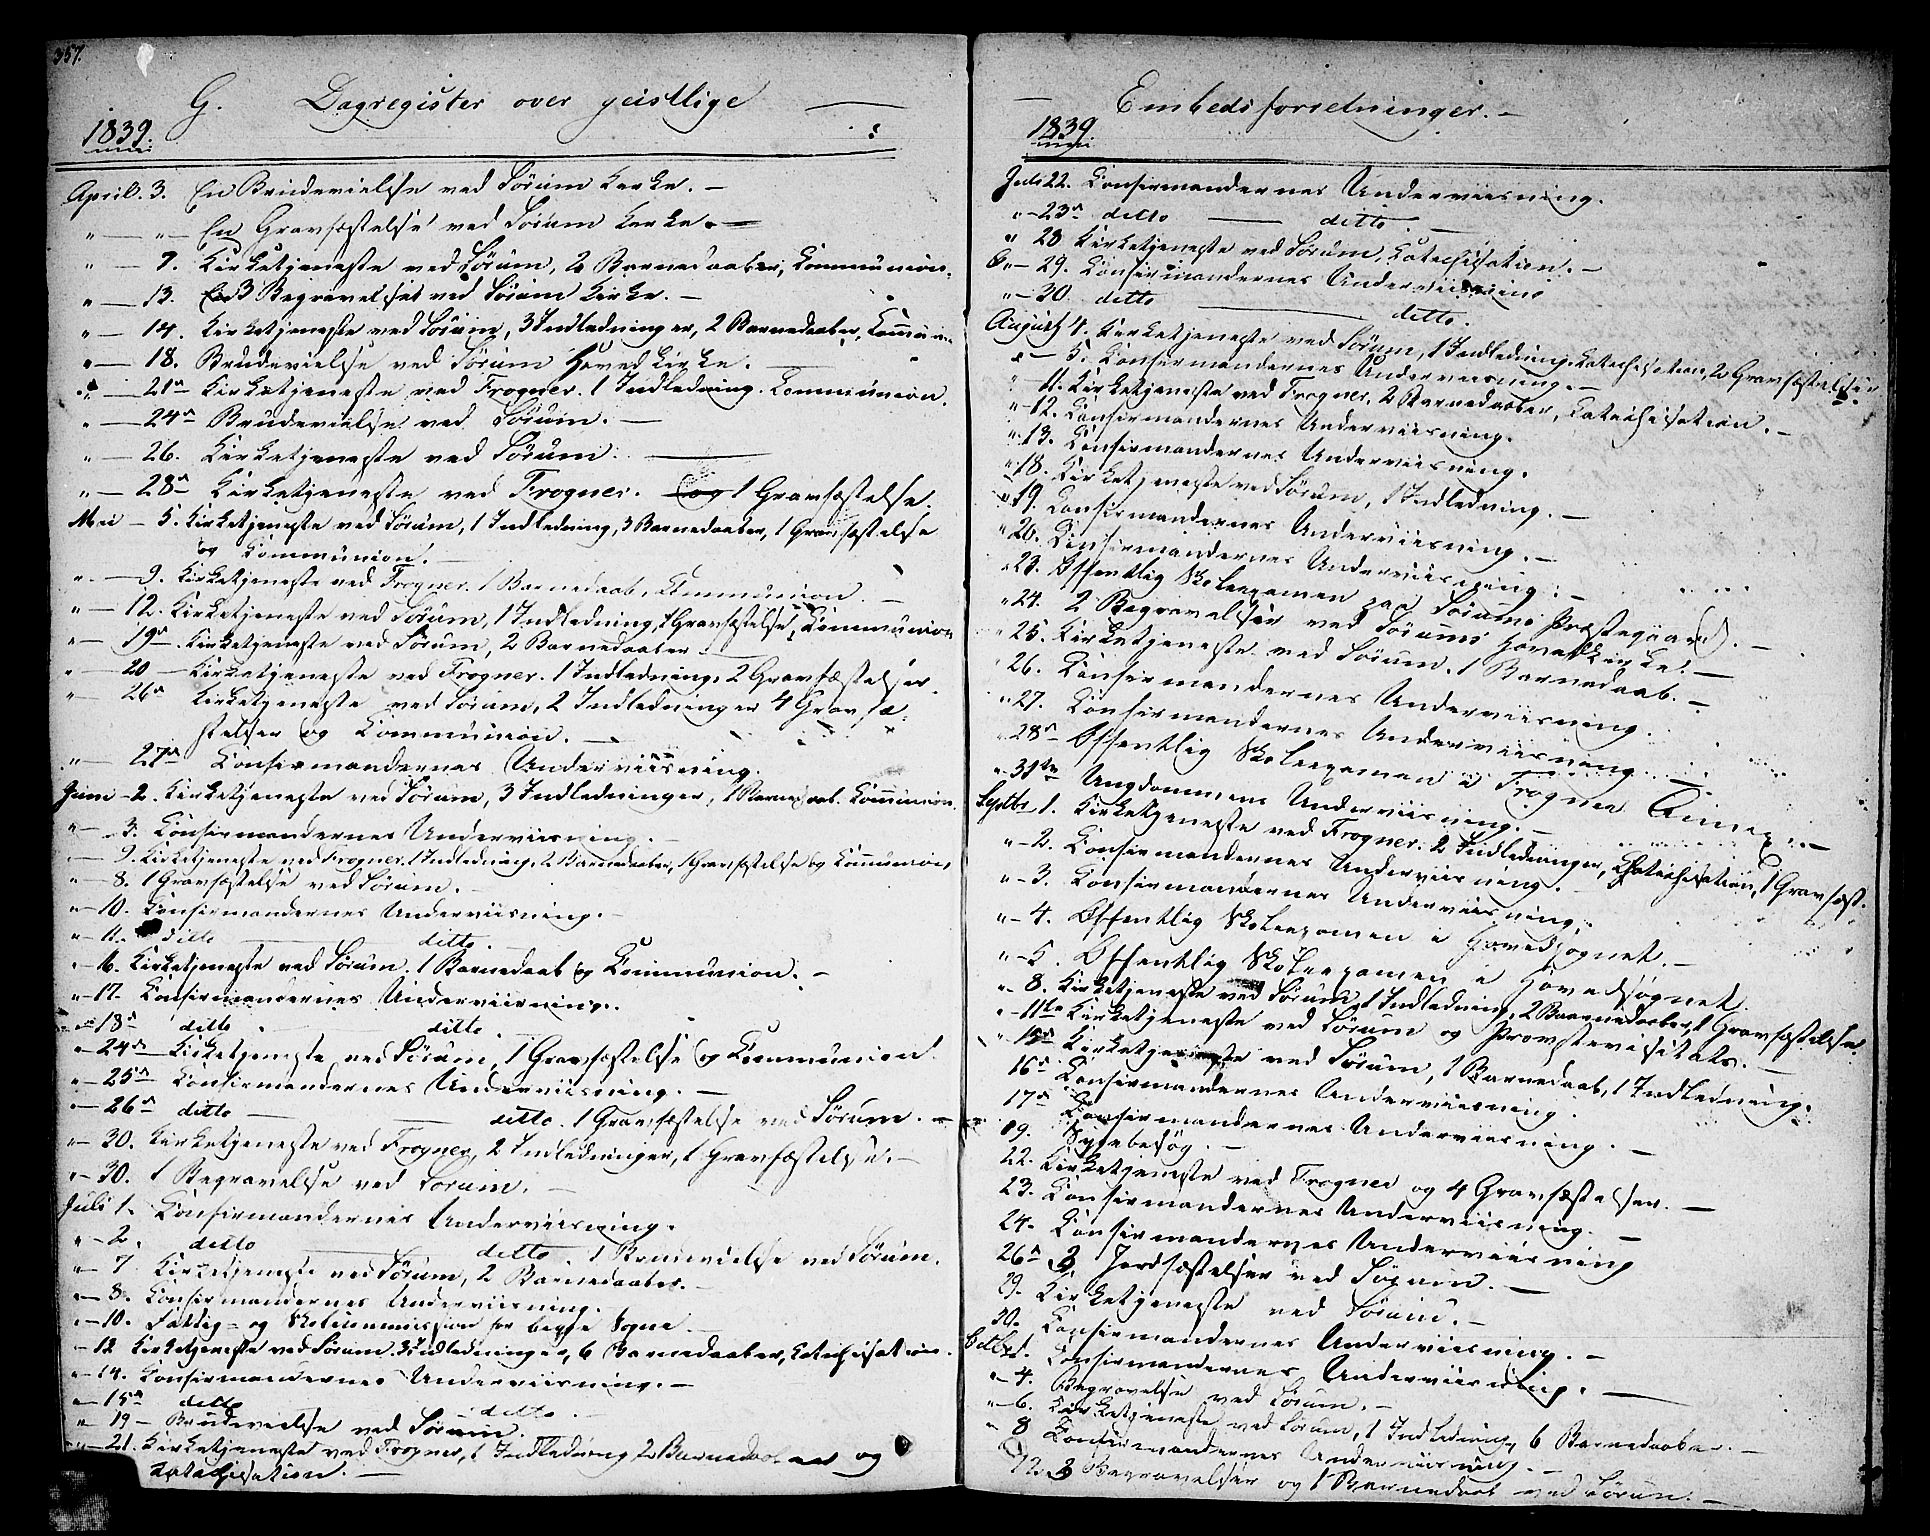 357.
G. Dagregister over geistlige —
1839.
April. 3. En Brudevielse ved Sørum Kirke. —
" — " — En Gravfæstelse ved Sørum Kirke. —
" — 7. Kirketjeneste ved Sørum, 2 Barnedaaber, Communion.
" — 13. 3 Begravelser ved Sørum Kirke. —
" — 14. Kirketjeneste ved Sørum, 3 Indledninger, 2 Barnedaaber, Com̄union
" — 18. Brudevielse ved Sørum Hovedkirke. —
" — 21de Kirketjeneste ved Frogner. 1 Indledning. Communion.
" — 24de Brudevielse ved Sørum. —
" — 26. Kirketjeneste ved Sørum. —
" — 28de Kirketjeneste ved Frogner. og 1 Gravfæstelse.
Mai — 5. Kirketjeneste ved Sørum, 1 Indledning, 3 Barnedaaber, 1 Gravfæstelse
og Communion. —
" — 9. Kirketjeneste ved Frogner. 1 Barnedaab, Communion —
" — 12. Kirketjeneste ved Sørum, 1 Indledning, 1 Gravfæstelse, Communion
" — 19de Kirketjeneste ved Sørum, 2 Barnedaaber —
" — 20 — Kirketjeneste ved Frogner. 1 Indledning, 2 Gravfæstelser.
" — 26de Kirketjeneste ved Sørum, 2 Indledninger 4 Gravfæ-
stelser og Communion. —
" — 27de Confirmandernes Underviisning.
Juni — 2. Kirketjeneste ved Sørum, 3 Indledninger, 1 Barnedaab. Com̄union.
" — 3. Confirmandernes Underviisning. —
— 9. Kirketjeneste ved Frogner. 1 Indledning, 2 Barnedaaber, 1 Gravfæstelse og Com̄union,
" — 8. 1 Gravfæstelse ved Sørum. —
" — 10. Confirmandernes Underviisning. —
" — 11. ditto — ditto.
" — 16. Kirketjeneste ved Sørum. 1 Barnedaab og Communion. —
" — 17. Confirmandernes Underviisning.
" — 18de ditto — ditto.
" — 24de Kirketjeneste ved Sørum, 1 Gravfæstelse og Communion.
" — 25de Confirmandernes Underviisning. —
" — 26de ditto — ditto. 1 Gravfæstelse ved Sørum. —
" — 30. Kirketjeneste ved Frogner, 2 Indledninger, 1 Gravfæstelse. —
" — 30. 1 Begravelse ved Sørum. —
Juli 1. Confirmandernes Underviisning.
" — 2. ditto — ditto 1 Brudevielse ved Sørum.
" — 7 Kirketjeneste ved Sørum, 2 Barnedaaber. —
" — 8. Confirmandernes Underviisning.
" — 10. Fattig- og Skolecommission for begge Sogne —
" — 12 Kirketjeneste ved Sørum. 3 Indledninger, 6 Barnedaaber, Catechisation.
" — 14. Confirmandernes Underviisning. —
" — 15de ditto — ditto. —
" — 19 — Brudevielse ved Sørum.
" — 21. Kirketjeneste ved Frogner, 1 Indledning 2 Barnedaaber og
Catechisation. —
— Embedsforretninger. —
1839.
Juli 22. Confirmandernes Underviisning.
" — 23de ditto — ditto. —
" 28 Kirketjeneste ved Sørum, Catechisation. —
" — 29. Confirmandernes Underviisning
" — 30. ditto — ditto.
August 4. Kirketjeneste ved Sørum, 1 Indledning. Catechisation, 2 Gravfæstelser
" — 5. Confirmandernes Underviisning. —
" — 11. Kirketjeneste ved Frogner, 2 Barnedaaber, Catechisation. —
" 12. Confirmandernes Underviisning.
" 13. Confirmandernes Underviisning.
" 18. Kirketjeneste ved Sørum, 1 Indledning. —
" 19. Confirmandernes Underviisning. —
" 20. Confirmandernes Underviisning. —
" 23. Offentlig Skoleexamen paa Sørums Præstegaard. —
" 24. 2 Begravelser ved Sørums Hovedkirke. —
" 25. Kirketjeneste ved Sørum. 1 Barnedaab. —
26. Confirmandernes Underviisning.
" 27. Confirmandernes Underviisning —
" 28de Offentlig Skoleexamen i Frogner Annex. —
" 31te Ungdommens Underviisning. —
Septbr 1. Kirketjeneste ved Frogner. 2 Indledninger, Chatechisation, 1 Gravfæst.
" — 2. Confirmandernes Underviisning. —
" — 3. Confirmandernes Underviisning.
" — 4. Offentlig Skoleexamen i Hovedsognet. —
" — 5. Offentlig Skoleexamen i Hovedsognet.
" — 8. Kirketjeneste ved Sørum, 1 Indledning, 2 Barnedaaber, 1 Gravfæstelse.
" — 11te Kirketjeneste ved Sørum og Provstevisitats. —
" 15de Kirketjeneste ved Sørum, 1 Barnedaab, 1 Indledning.
16de Confirmandernes Underviisning.
17de Confirmandernes Underviisning. —
19. Sygebesøg. —
22. Kirketjeneste ved Frogner og 4 Gravfæstelser. —
23. Confirmandernes Underviisning. —
24. Confirmandernes Underviisning
26de 3 Jordfæstelser ved Sørum. —
29. Kirketjeneste ved Sørum. —
30. Confirmandernes Underviisning. —
Octbr 1. Confirmandernes Underviisning. —
" — 4. Begravelse ved Sørum. —
" — 6. Kirketjeneste ved Sørum, 1 Indledning, 6 Barnedaaber. —
" 8 Confirmandernes Underviisning. —
12. 3 Begravelser og 1 Barnedaab ved Sørum. —